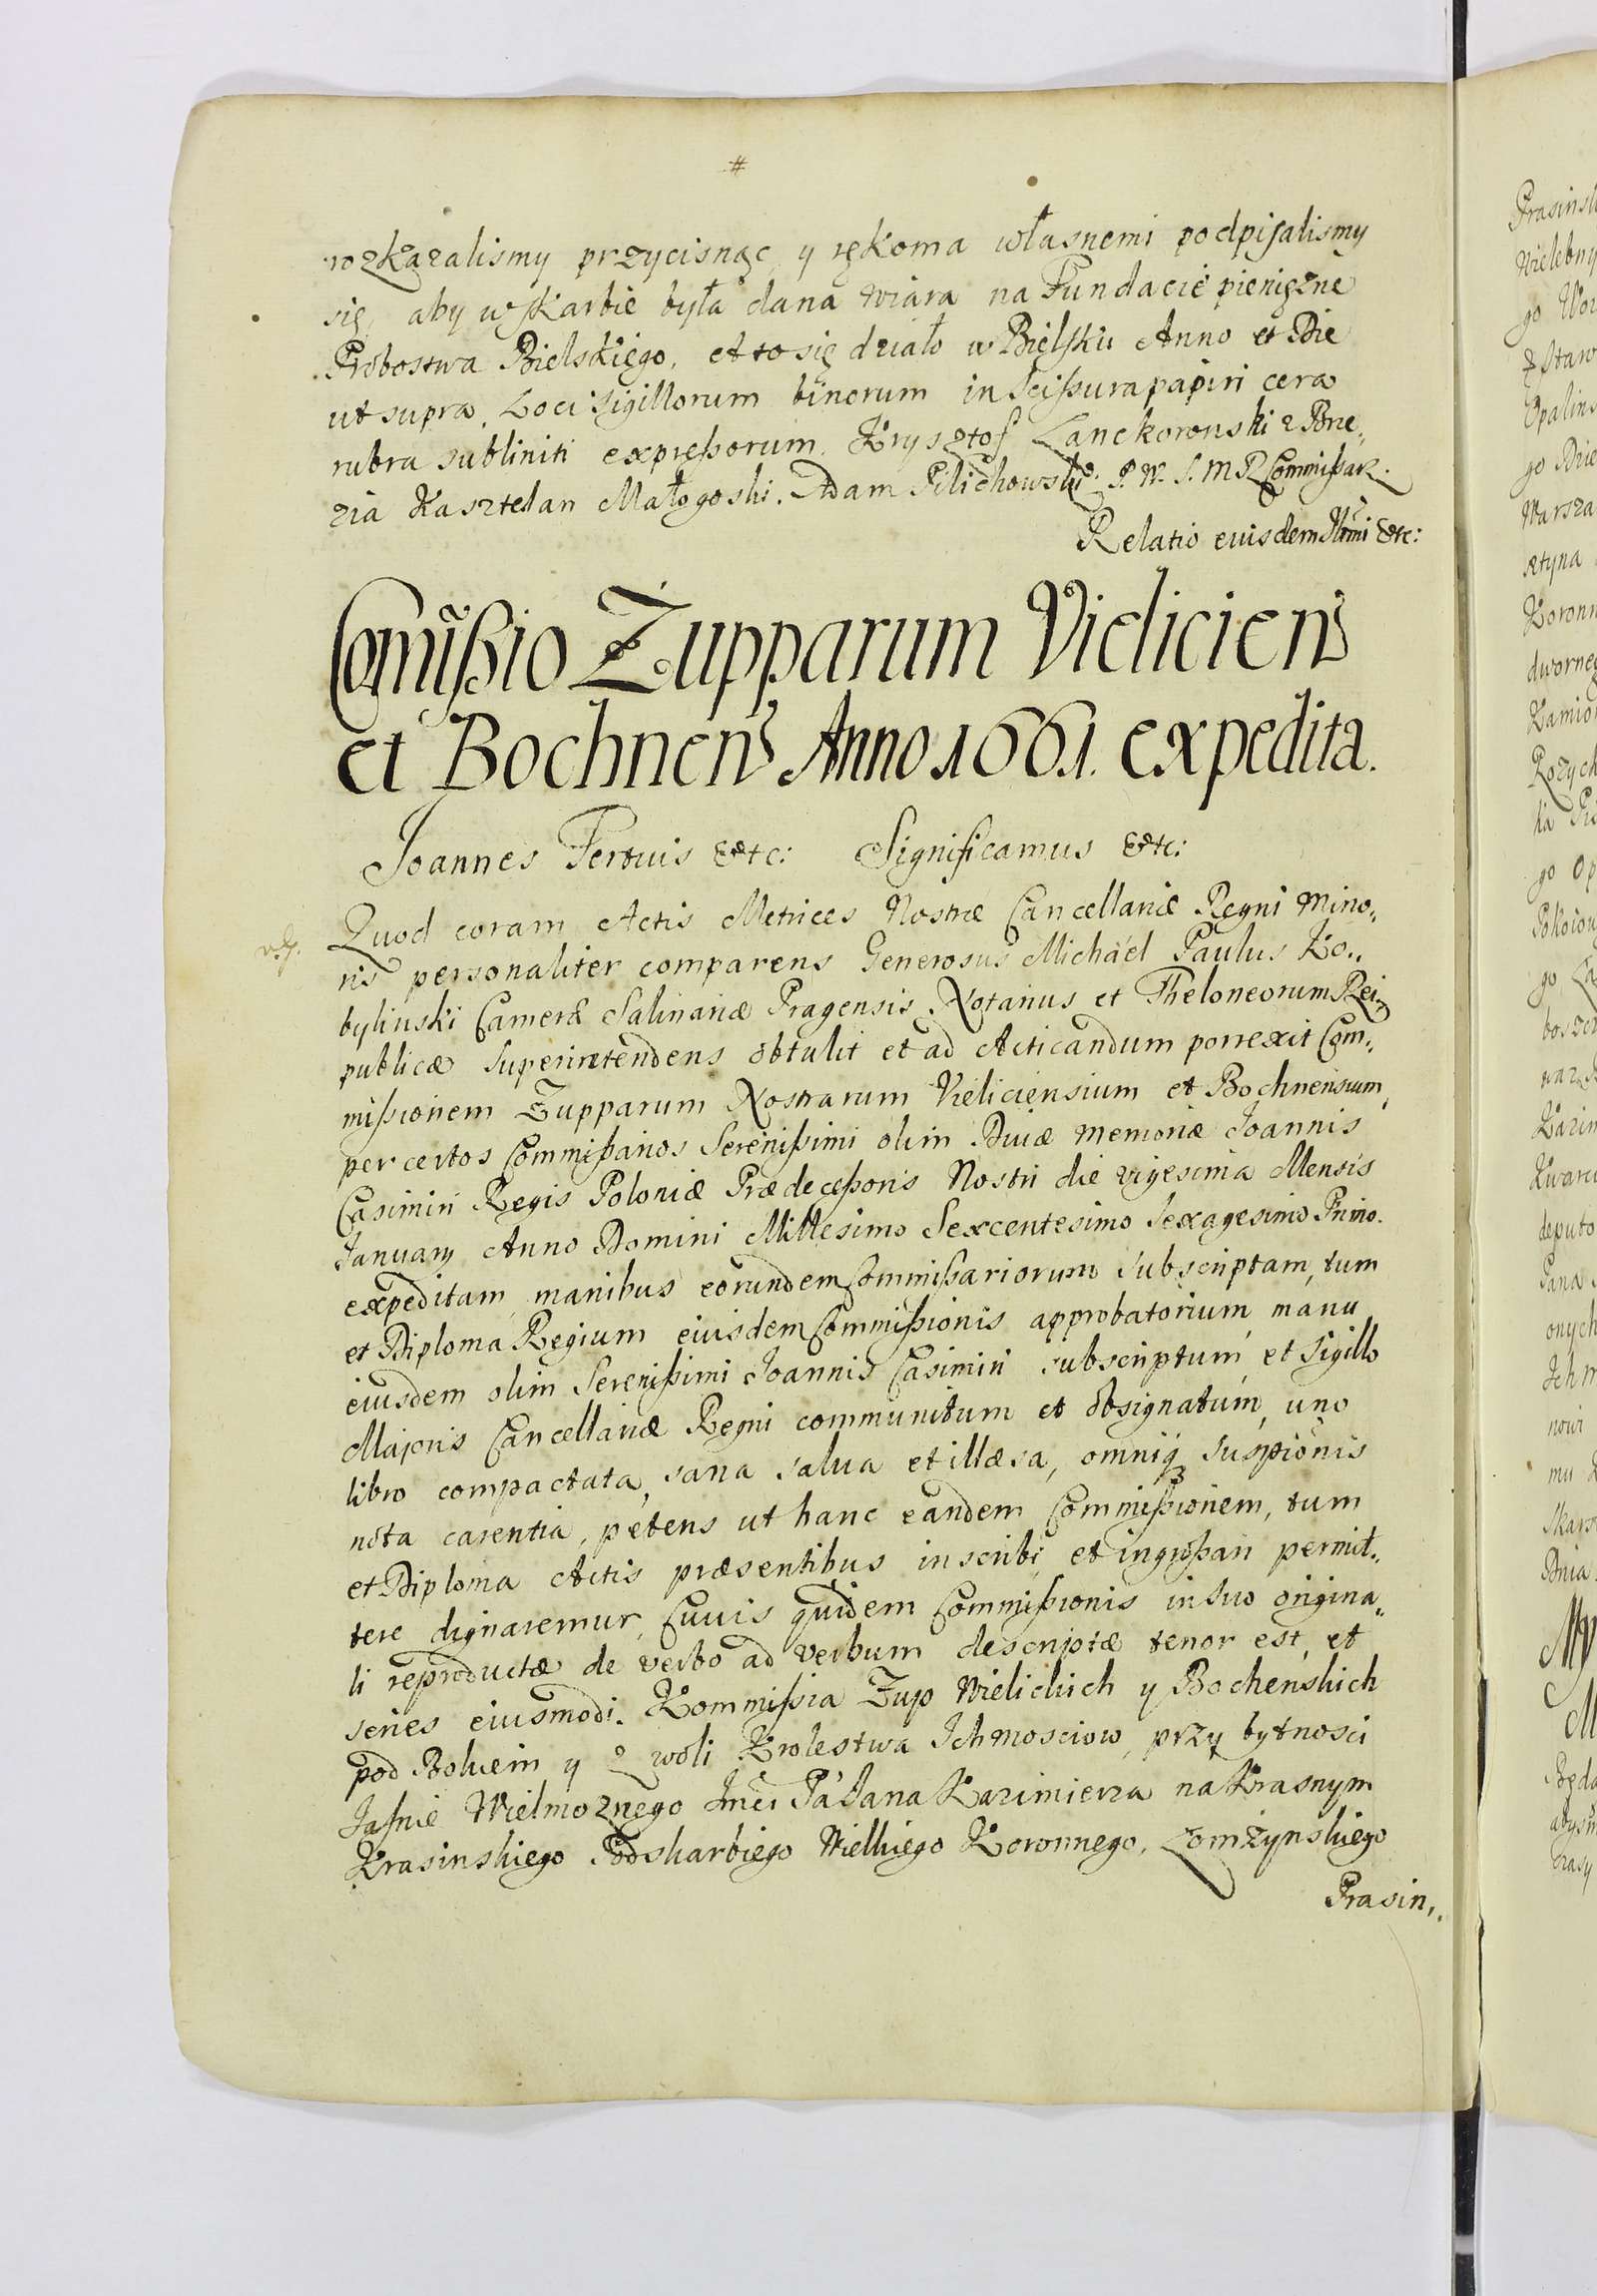 #
rozkazalismy przycisnąc y rękoma własnemi podpisalismy
się, aby w skarbie była dana wiara na Fundacie pieniężne
Probostwa Bielskiego, et to się działo w Bielsku Anno et Die
ut supra. Loci sigillorum binorum in scißura papiri cera
rubra subliniti expreßorum. Krysztof Lanckoronski z Brze„
zia Kasztelan Małogoski. Adam Pilichowski P. W. J. M R Commißarz.
Relatio eiusdem Illmi &etc:
Comißio Zupparum Vieliciens
et Bochnens Anno 1661. expedita.
Joannes Tertius &etc: Significamus &etc:
Quod coram Actis Metrices Nostræ Cancellariæ Regni Mino„
ris personaliter comparens Generosus Michaël Paulus Ko„
bylinski Cameræ Salinariæ Pragensis Notarius et Theloneorum Rei„
publicæ Superintendens obtulit et ad Acticandum porrexit Com„
mißionem Zupparum Nostrarum Vieliciensium et Bochnensium,
per certos Commißarios Serenißimi olim Divæ memoriæ Joannis
Casimiri Regis Poloniæ Prædeceßoris Nostri die vigesima Mensis
Januarij Anno Domini Millesimo Sexcentesimo Sexagesimo Primo.
expeditam, manibus eorundem Commißariorum subscriptam, tum
et Diploma Regium eiusdem Commißionis approbatorium manu
eiusdem olim Serenißimi Joannis Casimiri subscriptum et Sigillo
Majoris Cancellariæ Regni communitum et obsignatum, uno
libro compactata, sana salua et illæsa, omniq suspionis
nota carentia, petens ut hanc eandem Commißionem, tum
et Diploma Actis præsentibus inscribi, et ingroßari permit„
tere dignaremur, Cuuis quidem Commißionis in suo origina„
li reproductæ de verbo ad verbum descriptæ tenor est, et
series eiusmodi. Kommißia Zup Wielickich y Bochenskich
pod Bokiem y z woli Krolestwa Ichmosciow, przy bytnosci
Jasnie Wielmożnego Jmci Pa Jana Kazimierza na Krasnym
Krasinskiego Podskarbiego Wielkiego Koronnego, Łomżynskiego
Prasin„